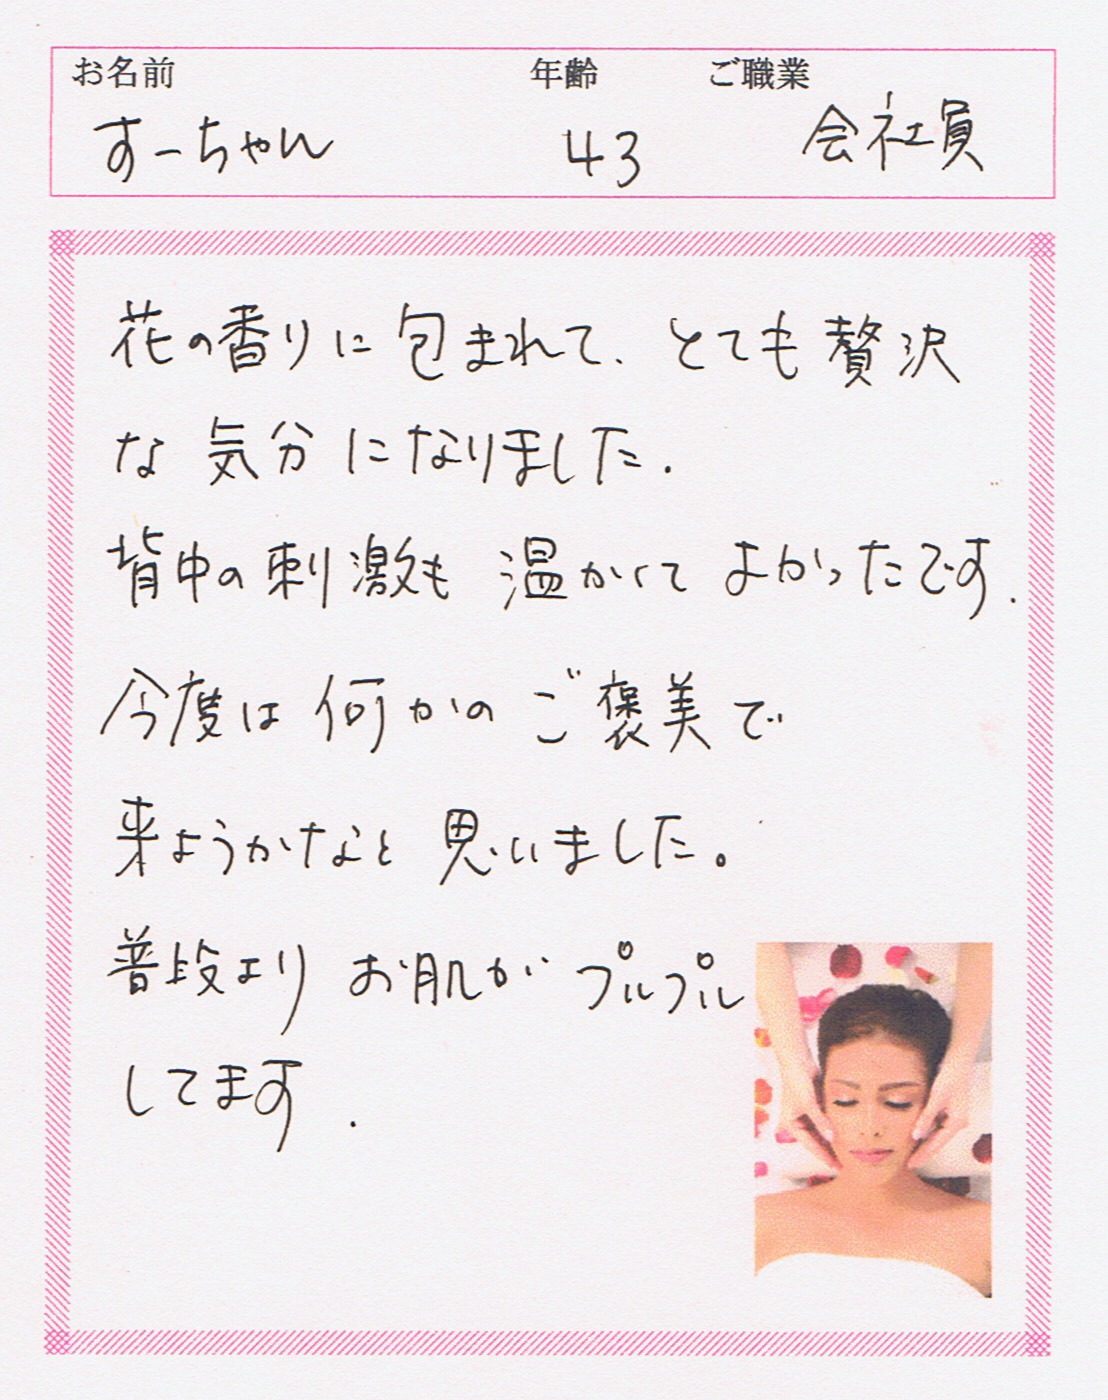 お名前 年齢 ご職業
すーちゃん 43 会社員
花の香りに包まれて、とても贅沢
な気分になりました.
背中の刺激も温かくてよかったです.
今度は何かのご褒美で
来ようかなと思いました。
普段よりお肌がプルプル
してます.